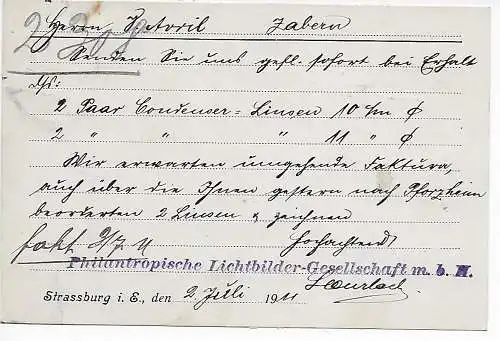 Herrn Zabern
Senden Sie uns gefl. sofort bei Erhalt
ds:
2 Paar Condenser-Linsen 10 cm ∅
2 " " " 11 " ∅
Wir erwarten umgehende Faktura,
auch über die Ihnen gestern nach Pforzheim
beorderten 2 Linsen & zeichnen
fakt 3/7 11 Hochachtend
Philantropische Lichtbilder-Gesellschaft m. b. H.
Strassburg i. E., den 2 Juli 1911